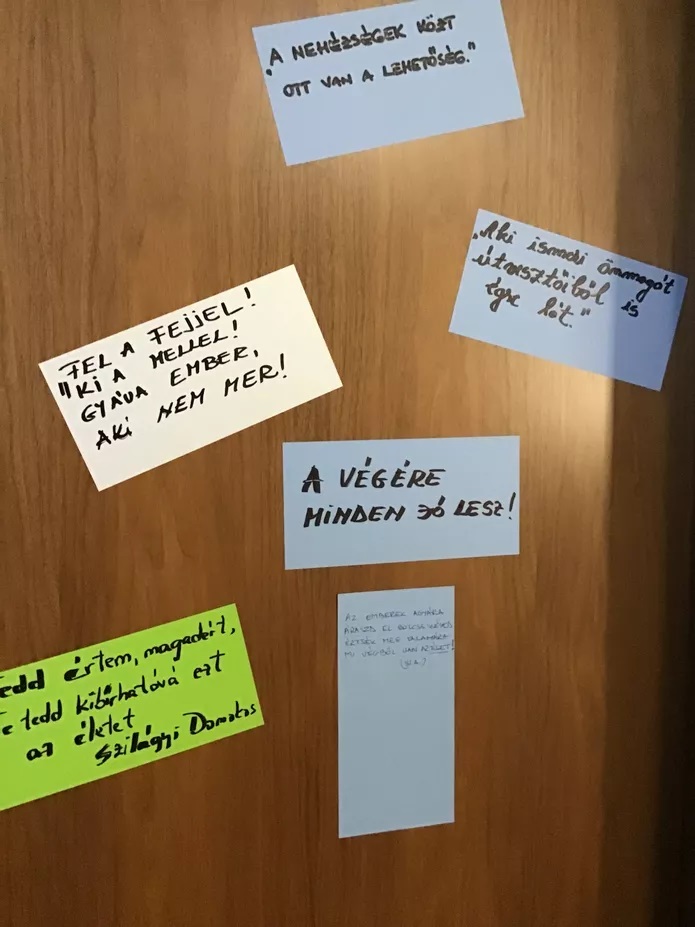 "A NEHÉZSÉGEK KÖZT
OTT VAN A LEHETŐSÉG."
"Aki ismeri önmagát
útvesztőiből is
égre lát."
FEL A FEJJEL!
"KI A MELLEL!
GYÁVA EMBER,
AKI NEM MER!
A VÉGÉRE
MINDEN JÓ LESZ!
AZ EMBEREK
EL
MEG
MI VAN
edd értem, magadért,
e tedd kibírhatóvá ezt
az életet
Szilágyi Domokos